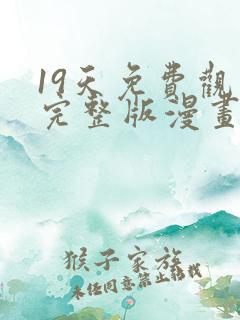 19天免費觀
完整版漫畫
猴子家族
未経同意禁止轉載